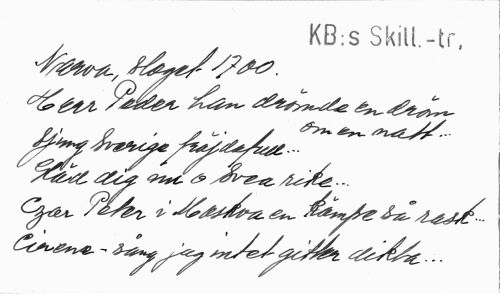 KB:s Skill.-tr.
Narva, slaget 1700.
Herr Peder han drömde en dröm
om en natt...
Sjung Sverige fröjdefull...
Kläd dig nu o Svea rike...
Czar Peter i Moskva en kämpe så rask...
sång jag intet gitter dikta...